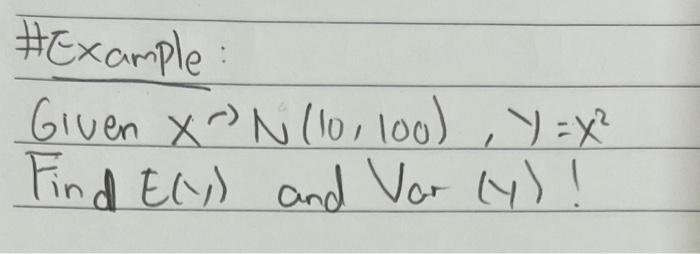 #Example:
Given X ~> N(10, 100), Y = X²
Find E(Y) and Var (Y)!